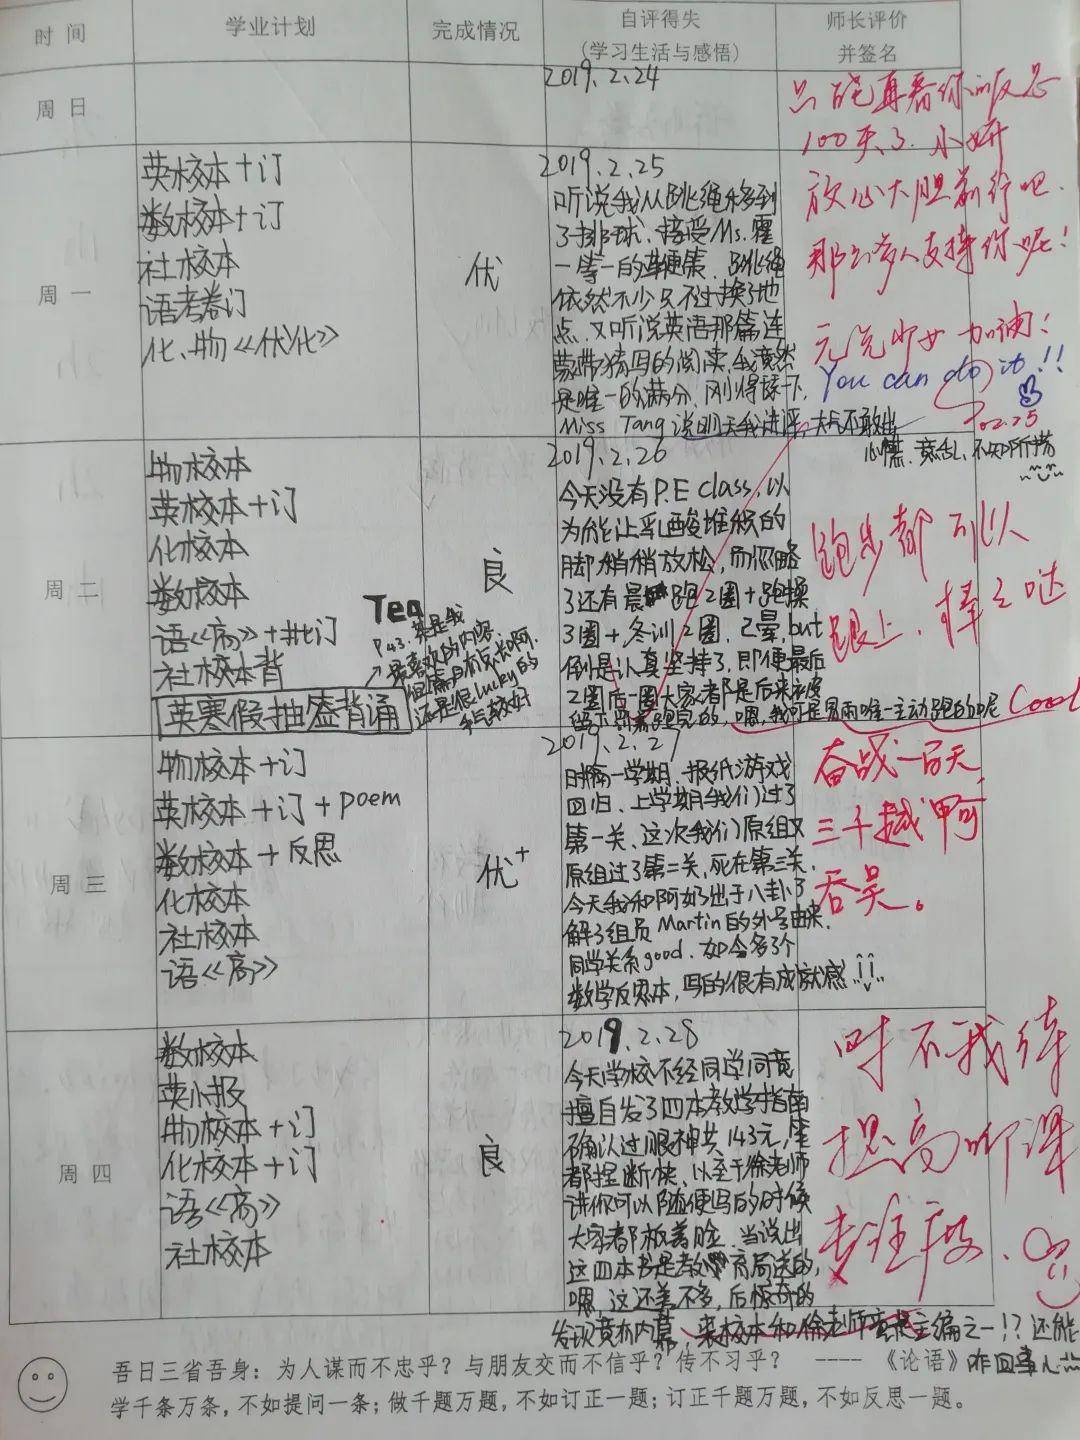 时间 学业计划 完成情况 自评得失 师长评价
(学习生活与感悟) 并签名
周日
2019.2.24
周一
英校本+订
数校本+订
社校本
语考卷订
化、物《优化》
优
2019.2.25
听说我从跳绳移到
了排球、接受Ms.霍
一等一的鞭策、跳绳
依然不少只不过换了地
点.又听说英语那篇连
蒙带猜写的阅读,我竟然
是唯一的满分.刚得瑟一下,
Miss Tang说明天我进评,大气不敢出
心慌、意乱、不知所措
100天了.小妍
放心大胆前行吧.
那么多人支持你呢!
元气少女 加油!
You can do it!!
02.25
周二
物校本
英校本+订
化校本
数校本
语《高》+卷订
社校本背
英寒假抽查背诵
P43,算是我
最喜欢的内容
但篇目有点长啊.
还是很lucky的
手气较好
良
2019.2.26
今天没有P.E class,以
为能让乳酸堆积的
脚稍稍放松,而忽略
了还有晨跑2圈+跑操
3圈+冬训2圈、已晕,but
倒是认真坚持了,即便最后
2圈后一圈大家都是后来被
跑步都可以
跟上、棒棒哒
Cool
周三
物校本+订
英校本+订+poem
数校本+反思
化校本
社校本
语《高》
优+
2019.2.27
时隔一学期、报纸游戏
回归、上学期我们过了
第一关、这次我们原组又
原组过了第二关,死在第三关.
今天我和阿妤出于八卦了
解了组员Martin的外号由来.
同学关系good.如今多了个
数学反思本,写的很有成就感
奋战一百天,
三千越甲可
吞吴。
周四
数校本
英小报
物校本+订
化校本+订
语《高》
社校本
良
2019.2.28
今天学校不经同学同意
擅自发了四本教学指南
确认过眼神共143元,笔
都捏断快、以至于徐老师
讲你可以随便写的时候
大家都板着脸.当说出
这四本书是教育局送的,
嗯,这还差不多,后惊奇的
发现竟有内幕,来校本和徐老师竟是主编之一!?还能
咋回事儿
时不我待
提高听课
吾日三省吾身:为人谋而不忠乎?与朋友交而不信乎?传不习乎? ----《论语》
学千条万条,不如提问一条;做千题万题,不如订正一题;订正千题万题,不如反思一题。